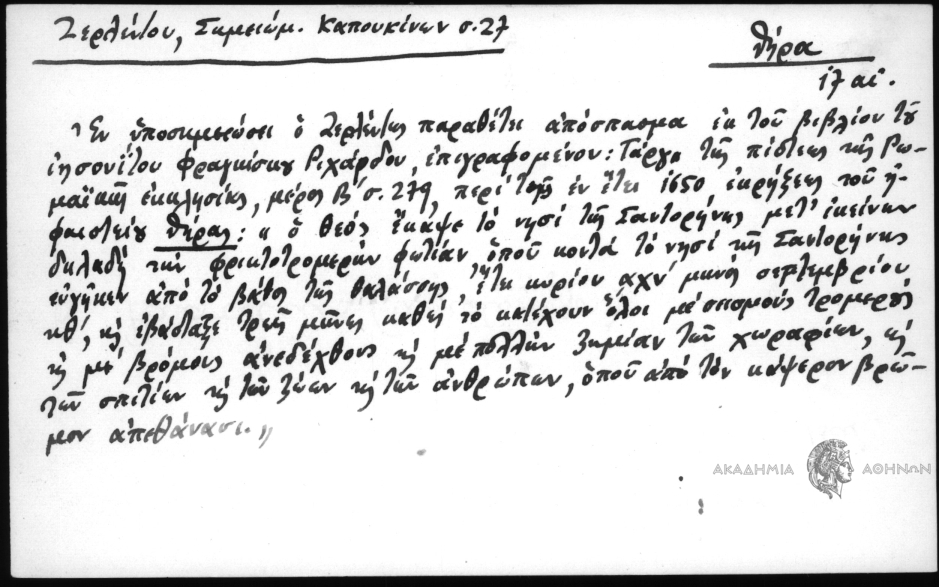 Ζερλέντου, Σημειώμ. Καπουκίνων σ. 27
Θήρα
17 αἰ.
Ἐν ὑποσημειώσει ὁ Ζερλέντης παραθέτει ἀπόσπασμα ἐκ τοῦ βιβλίου τοῦ
ἰησουΐτου Φραγκίσκου Ριχάρδου, ἐπιγραφομένου: Τάργα τῆς πίστεως τῆς Ρω-
μαϊκῆς ἐκκλησίας, μέρος Β' σ. 279, περὶ τῆς ἐν ἔτει 1650 ἐκρήξεως τοῦ ἡ-
φαιστείου Θήρας: « ὁ Θεὸς ἔκαψε τὸ νησὶ τῆς Σαντορήνης μετ' ἐκείνην
δηλαδὴ τὴν φρικτοτρομερὴν φωτίαν ὁποῦ κοντὰ τὸ νησὶ τῆς Σαντορήνης
εὐγῆκεν ἀπὸ τὸ βάθος τῆς θαλάσσης, ἔτει κυρίου αχν' μηνὸς σεπτεμβρίου
κθ', κὴ ἐβάσταξε τρεῖς μῆνες καθὼς τὸ κατέχουν ὅλοι μὲ σεισμοὺς τρομεροὺς
κὴ μὲ βρόμους ἀνεδέχθους κὴ μὲ πολλὴν ζημίαν τῶν χωραφίων, κὴ
τῶν σπιτίων κὴ τῶν ζώων κὴ τῶν ἀνθρώπων, ὁποῦ ἀπὸ τὸν κάψερον βρῶ-
μον ἀπεθάνασι. »
ΑΚΑΔΗΜΙΑ ΑΘΗΝΩΝ